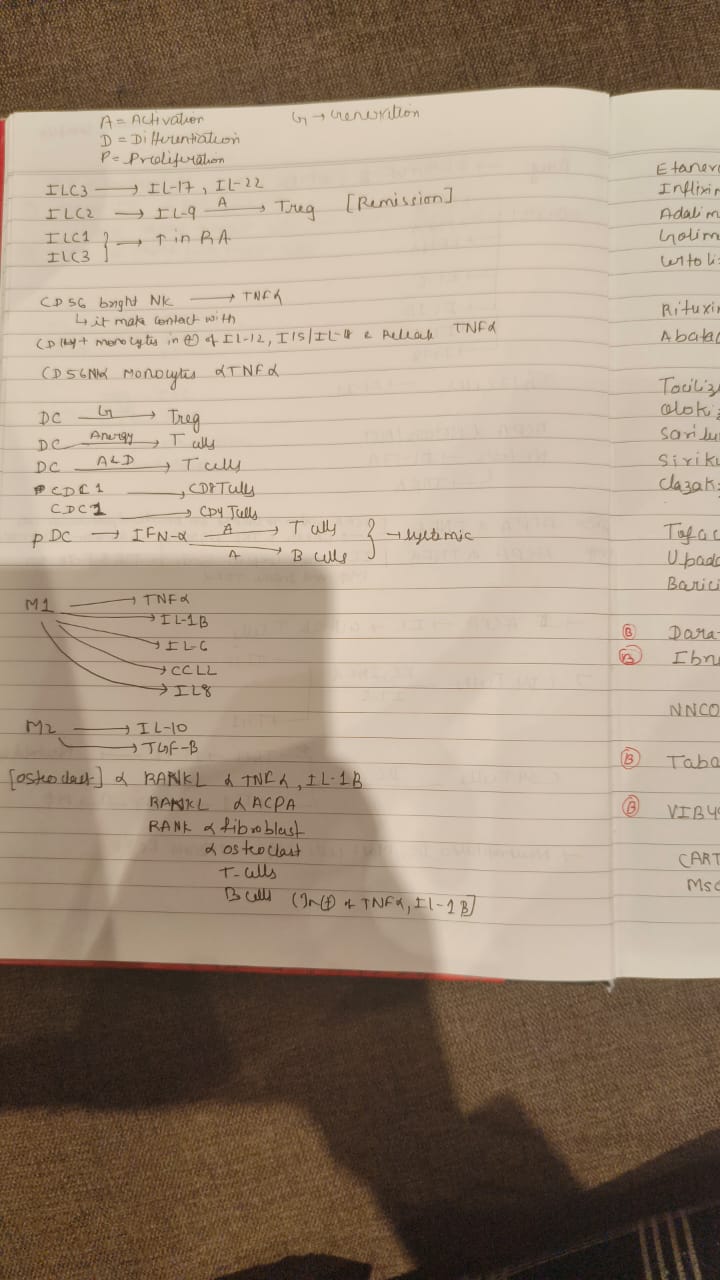 A = Activation
G → Generation
D = Differentiation
P = Proliferation
ILC3 → IL-17, IL-22
ILC2 → IL-9 A → Treg [Remission]
ILC1
ILC3 } → ↑ in RA
CD56 bright NK → TNFα
↳ it make contact with
monocytes in ⊕ of IL-12, I15/IL-18 & Release TNFα
CD56NK α Monocytes α TNFα
DC G → Treg
DC Anergy → T cells
DC A&D → T cells
CDC1 → CD8 T cells
CDC1 → CD4 T cells
pDC → IFN-α A → T cells
A → B cells } → systemic
M1 → TNFα
→ IL-1B
→ IL-6
→ CCLL
→ IL8
M2 → IL-10
→ TGF-B
[osteoclast] α RANKL α TNFα, IL-1B
RANKL α ACPA
RANK α fibroblast
α osteoclast
T-cells
B cells (In ⊕ of TNFα, IL-1B]
Etaner
Inflixi
Adalim
Golim
Certoli
Rituxi
Abata
Tociliz
oloki
Saril
Siriku
Clazak
Tofac
Upada
Barici
Ⓑ Dara
Ⓑ Ibru
NNCO
Ⓑ Taba
Ⓑ VIB4
CART
MSC